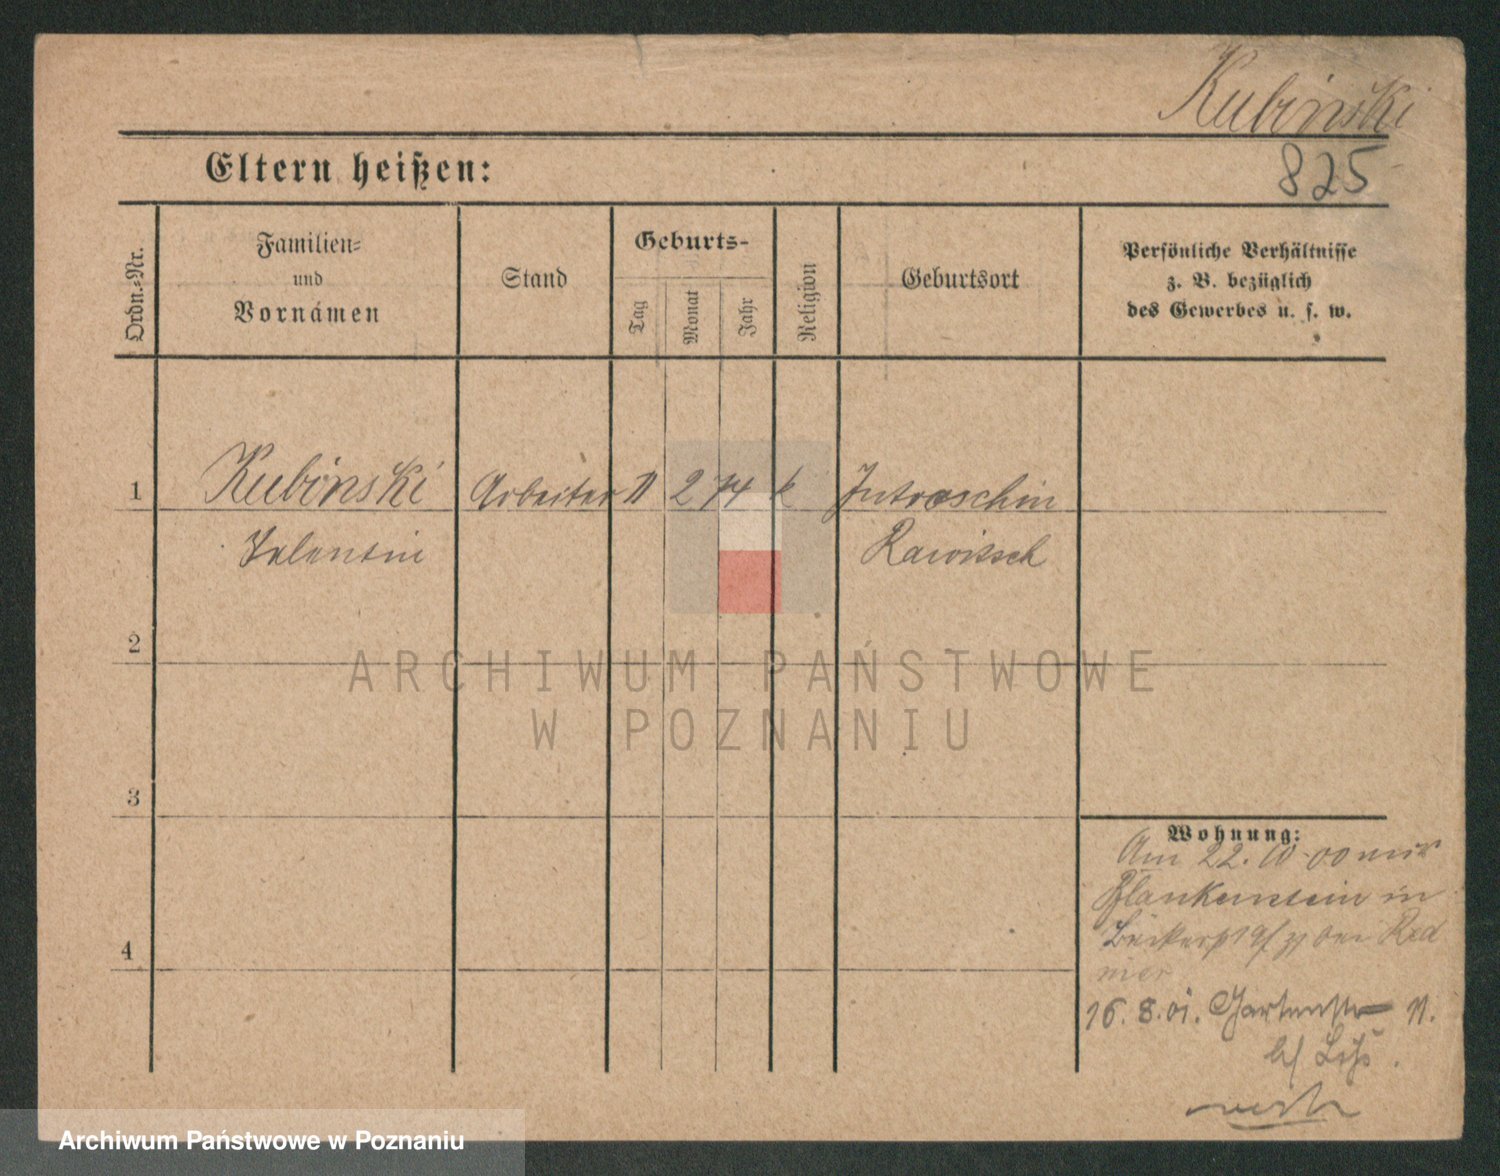 Kubinski
825
Eltern heißen:
Ordn.-Nr.
Familien-
und
Vornamen
Stand
Geburts-
Tag
Monat
Jahr
Religion
Geburtsort
Persönliche Verhältnisse
z. B. bezüglich
des Gewerbes u. s. w.
1
Kubinski Arbeiter 11 2 74 k Jutroschin
Valentin Rawitsch
2
3
4
Wohnung:
Am 22. 10. 00
Blankenstein in
bei Red
mer
16. 8. 01. Gartenstr 11.
b/
ARCHIWUM PAŃSTWOWE
W POZNANIU
Archiwum Państwowe w Poznaniu